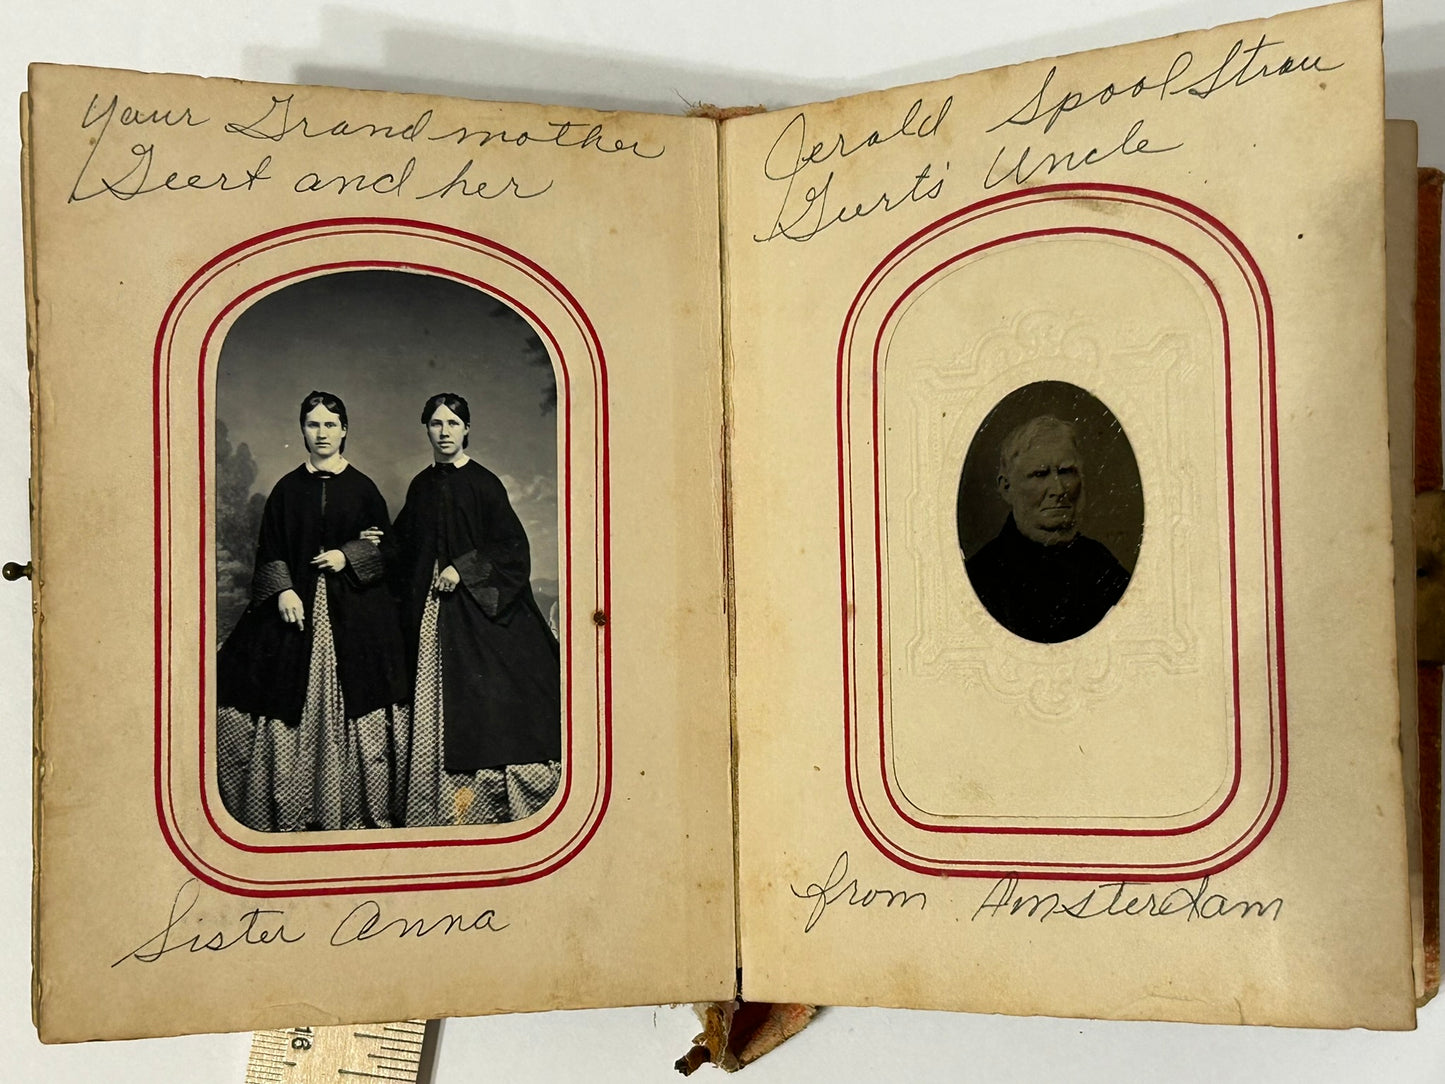 Your Grandmother
Geert and her
Sister Anna
Jerald Spool Strau
Gurt's Uncle
from Amsterdam
16